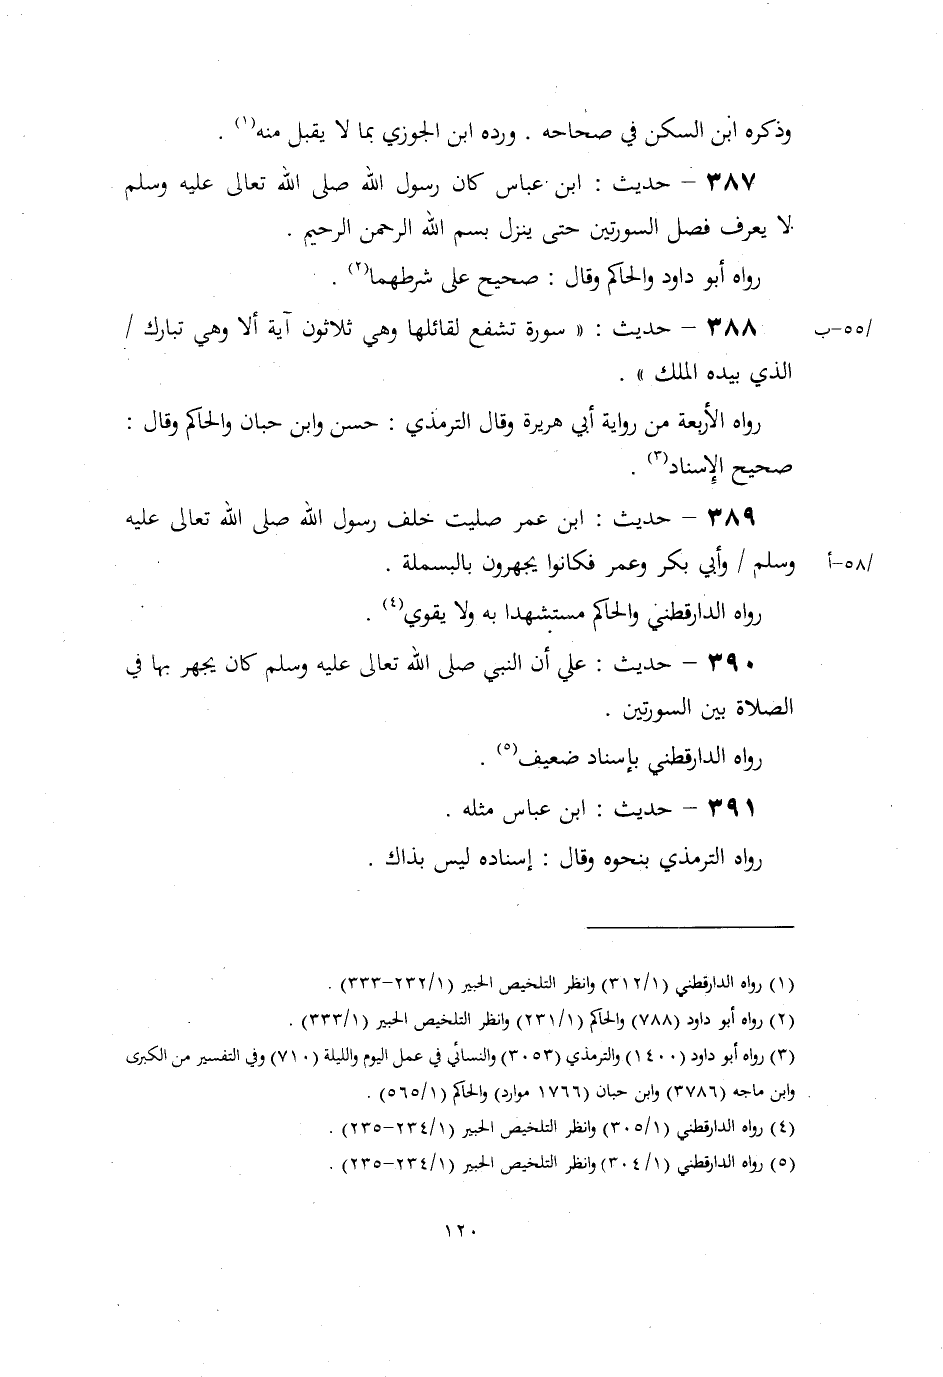 وذكره ابن السكن في صحاحه . ورده ابن الجوزي بما لا يقبل منه(١) .
٣٨٧ – حديث : ابن عباس كان رسول الله صلى الله تعالى عليه وسلم
لا يعرف فصل السورتين حتى ينزل بسم الله الرحمن الرحيم .
رواه أبو داود والحاكم وقال : صحيح على شرطهما(٢) .
٣٨٨ – حديث : « سورة تشفع لقائلها وهي ثلاثون آية ألا وهي تبارك / /٥٥-ب
الذي بيده الملك » .
رواه الأربعة من رواية أبي هريرة وقال الترمذي : حسن وابن حبان والحاكم وقال :
صحيح الإسناد(٣) .
٣٨٩ – حديث : ابن عمر صليت خلف رسول الله صلى الله تعالى عليه
وسلم / وأبي بكر وعمر فكانوا يجهرون بالبسملة . /٥٨-أ
رواه الدارقطني والحاكم مستشهدا به ولا يقوي(٤) .
٣٩٠ – حديث : علي أن النبي صلى الله تعالى عليه وسلم كان يجهر بها في
الصلاة بين السورتين .
رواه الدارقطني بإسناد ضعيف(٥) .
٣٩١ – حديث : ابن عباس مثله .
رواه الترمذي بنحوه وقال : إسناده ليس بذاك .
(١) رواه الدارقطني (٣١٢/١) وانظر التلخيص الحبير (٢٣٢/١-٣٣٣) .
(٢) رواه أبو داود (٧٨٨) والحاكم (٢٣١/١) وانظر التلخيص الحبير (٣٣٣/١) .
(٣) رواه أبو داود (١٤٠٠) والترمذي (٣٠٥٣) والنسائي في عمل اليوم والليلة (٧١٠) وفي التفسير من الكبرى
وابن ماجه (٣٧٨٦) وابن حبان (١٧٦٦ موارد) والحاكم (٥٦٥/١) .
(٤) رواه الدارقطني (٣٠٥/١) وانظر التلخيص الحبير (٢٣٤/١-٢٣٥) .
(٥) رواه الدارقطني (٣٠٤/١) وانظر التلخيص الحبير (٢٣٤/١-٢٣٥) .
١٢٠